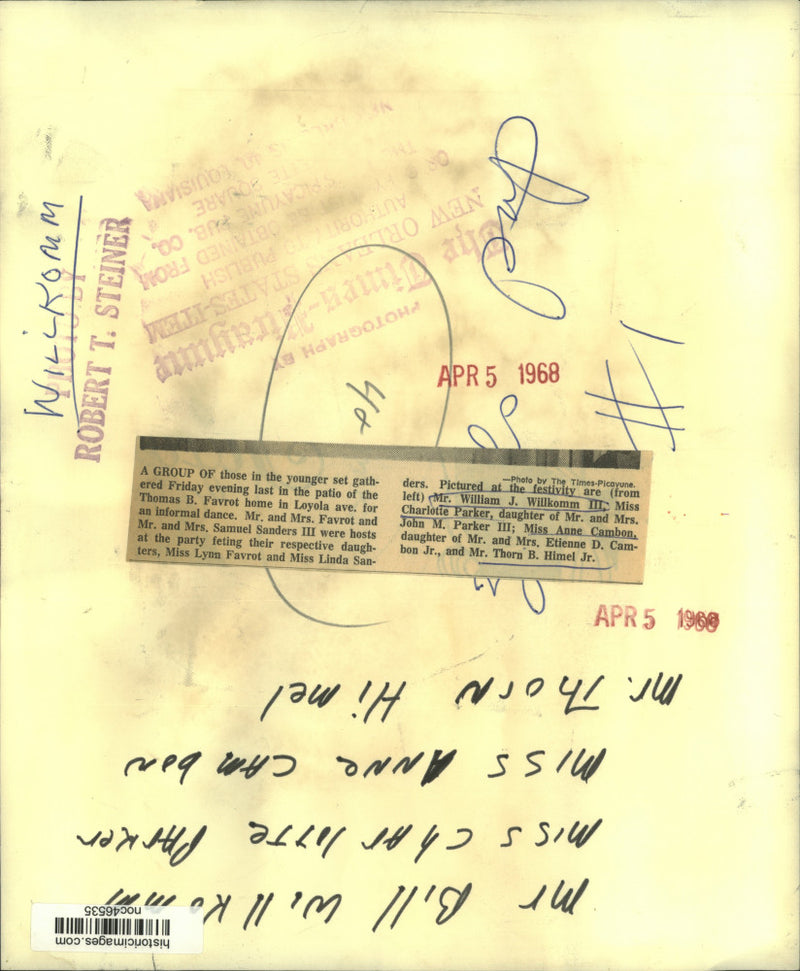 WILLKOMM
PHOTO BY
ROBERT T. STEINER
PHOTOGRAPH BY
The Times-Picayune
NEW ORLEANS STATES-ITEM
APR 5 1968
#1
A GROUP OF those in the younger set gath-
ered Friday evening last in the patio of the
Thomas B. Favrot home in Loyola ave. for
an informal dance. Mr. and Mrs. Favrot and
Mr. and Mrs. Samuel Sanders III were hosts
at the party feting their respective daugh-
ters, Miss Lynn Favrot and Miss Linda San-
—Photo by The Times-Picayune.
ders. Pictured at the festivity are (from
left) Mr. William J. Willkomm III, Miss
Charlotte Parker, daughter of Mr. and Mrs.
John M. Parker III; Miss Anne Cambon,
daughter of Mr. and Mrs. Etienne D. Cam-
bon Jr., and Mr. Thorn B. Himel Jr.
APR 5 1968
Mr Bill Willkomm
Miss Charlotte Parker
Miss Anne Cambon
Mr. Thorn Himel
historicimages.com
noc46535